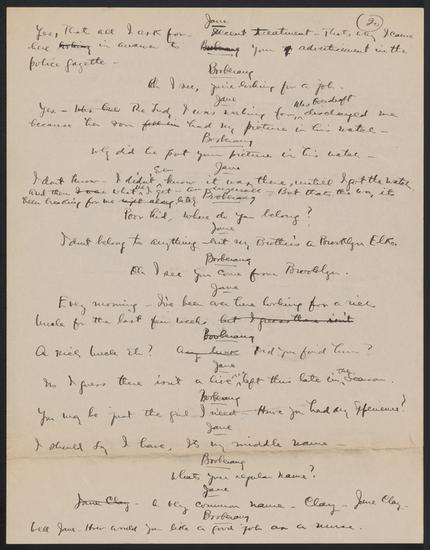 Jane
(2)
Yes, That all I ask for - decent treatment - That's why I came
here looking in answer to your advertisement in the
police gazette -
Booberang
Oh I see, you're looking for a job.
Jane
Yes - The last I was working for Mrs discharged me
because her son had my picture in his watch -
Booberang
why did he put your picture in his watch -
Jane
I don't know - I didn't even know it was there, untill I got the watch
and then what I get - But that's the way it
been breaking for me right along lately
Booberang
Poor Kid, where do you belong?
Jane
I dont belong to anything - but my Brothers a Brooklyn Elk.
Booberang
Oh I see you come from Brooklyn.
Jane
Every morning - I've been over here looking for a rich
Uncle for the last few weeks but I guess there isn't
Booberang
A rich Uncle Eh? Any luck Did you find him?
Jane
No I guess there isn't a live one left this late in the season.
Booberang
You may be just the girl I need - Have you had any Experience?
Jane
I should say I have, Its my middle name -
Booberang
Whats your regular name?
Jane
Jane Clay - A very common name - Clay - Jane Clay -
Booberang
Well Jane - How would you like a good job as a nurse.